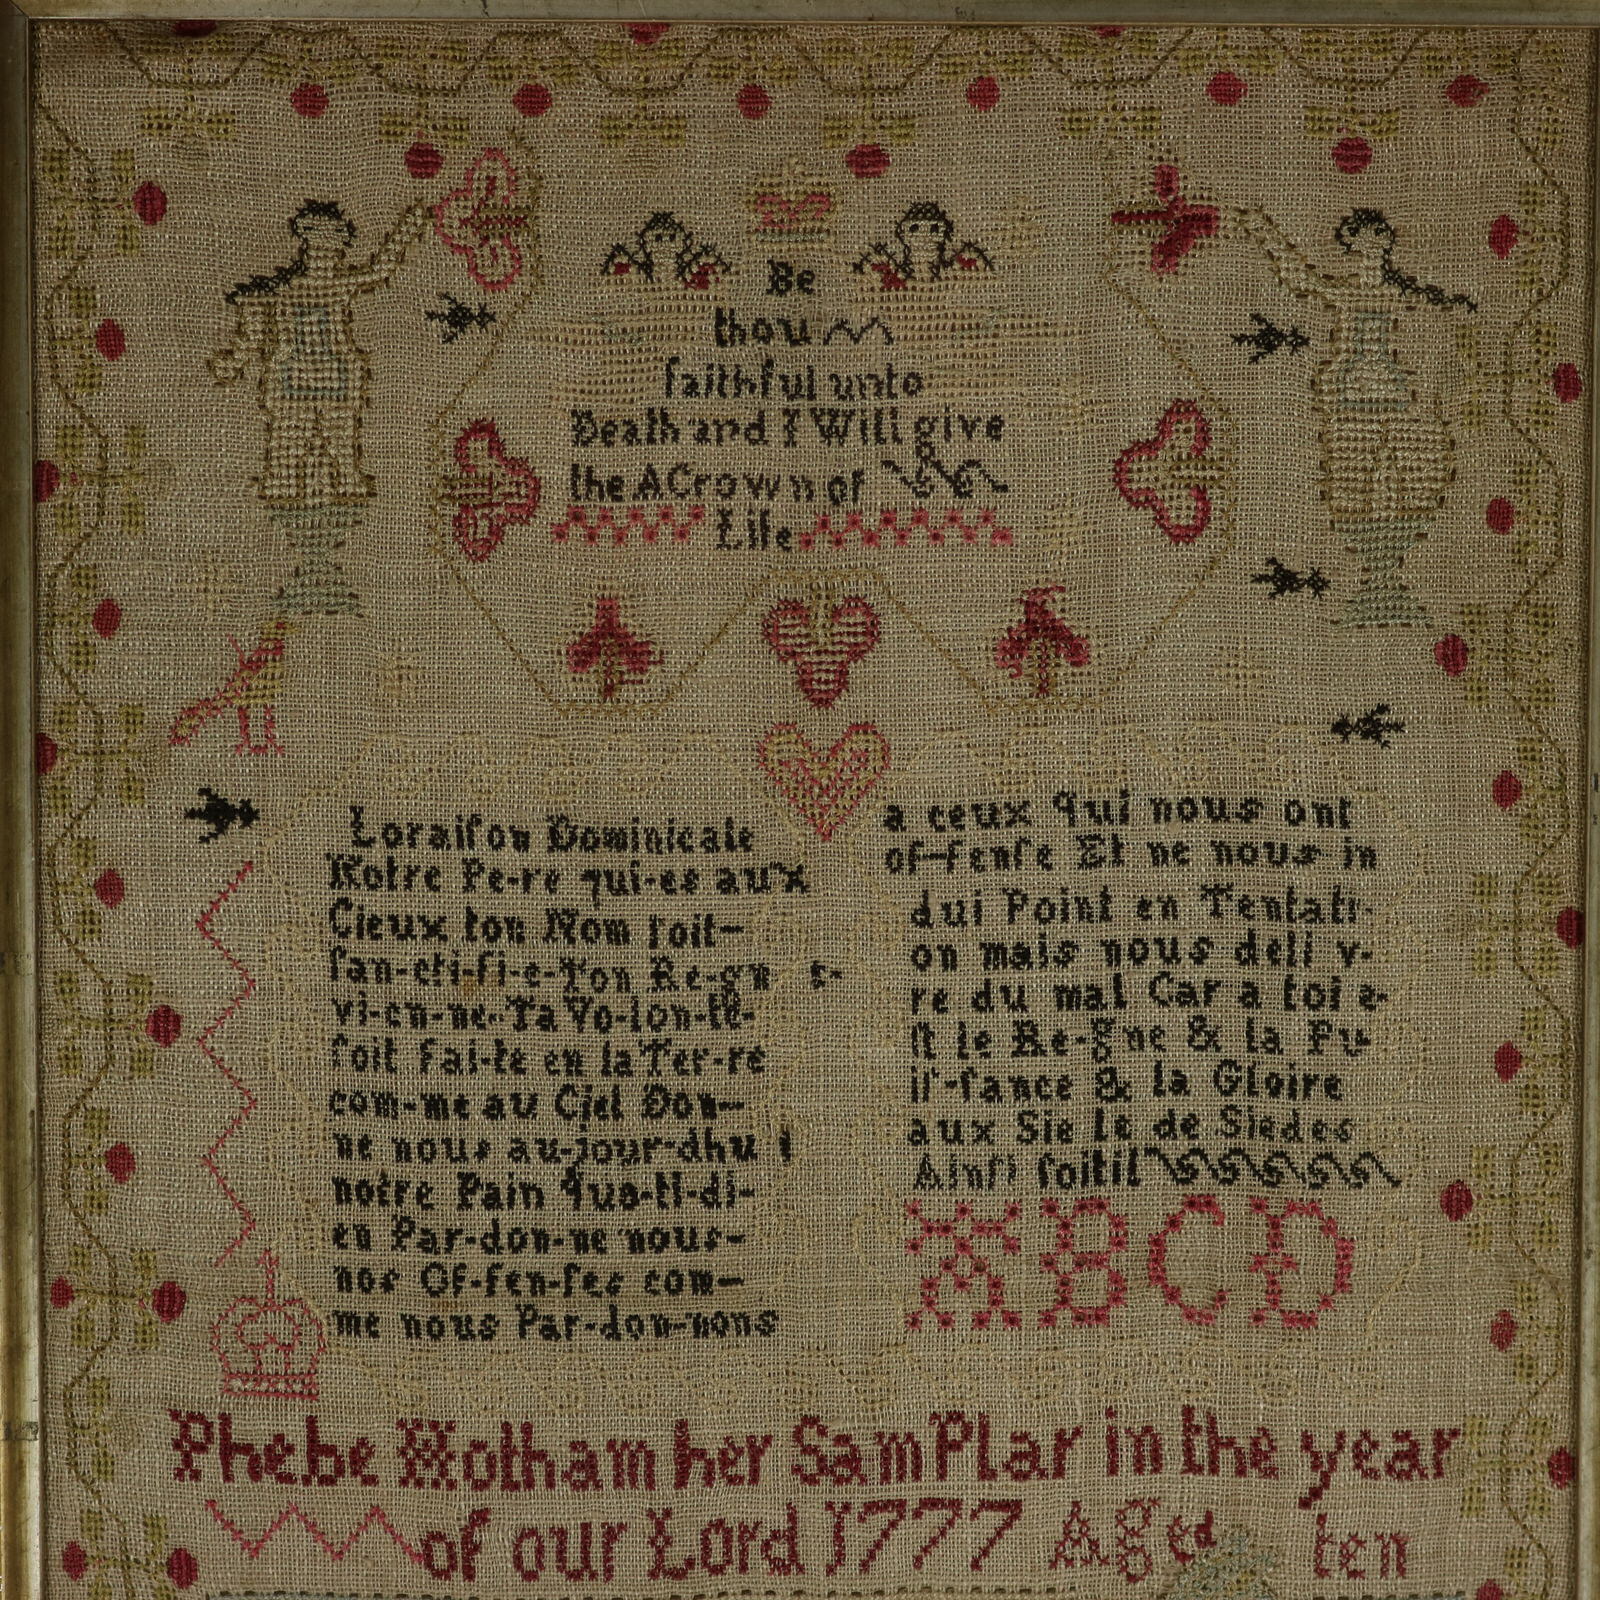 Be
thou
faithful unto
Death and I Will give
the A Crown of
Life
Loraiſon Dominicale
Notre Pe-re qui-es aux
Cieux ton Nom ſoit-
ſan-cti-fi-e-Ton Re-gn e-
vi-en-ne-Ta Vo-lon-te-
ſoit Fai-te en la Ter-re
com-me au Ciel Don-
ne nous au-jour-dhu i
notre Pain quo-ti-di-
en Par-don-ne nous-
nos Of-fen-ſes com-
me nous Par-don-nons
a ceux qui nous ont
of-fenſe Et ne nous in
dui Point en Tentati-
on mais nous deli v-
re du mal Car a toi e-
ſt le Re-gne & la Pu-
iſ-ſance & la Gloire
aux Sie le de Siedes
Ainſi ſoitil
A B C D
Phebe Hotham her SamPlar in the year
of our Lord 1777 Aged ten